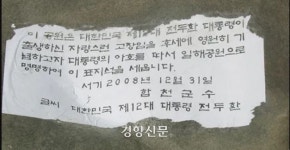 이 공원은 대한민국 제12대 전두환 대통령이
출생하신 자랑스런 고장임을 후세에 영원히 기
념하고자 대통령의 아호를 따서 일해공원으로
명명하여 이 표지석을 세웁니다.
서기 2008년 12월 31일
합 천 군 수
글씨 대한민국 제12대 대통령 전두환
경향신문